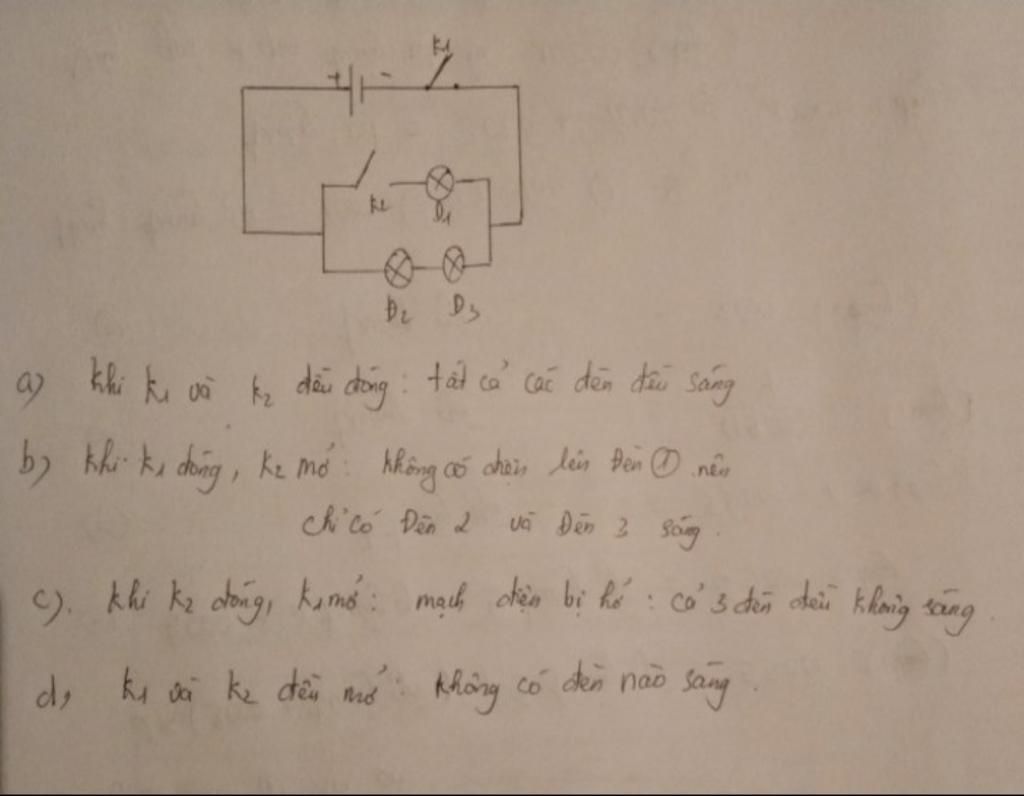 + - K1
K2 Đ1
Đ2 Đ3
a) khi k1 và k2 đều đóng: tất cả các đèn đều sáng
b) khi k1 đóng, k2 mở: không có điện lên Đèn ① nên
chỉ có Đèn 2 và Đèn 3 sáng.
c). khi k2 đóng, k1 mở: mạch điện bị hở: cả 3 đèn đều không sáng.
d, k1 và k2 đều mở: không có đèn nào sáng.